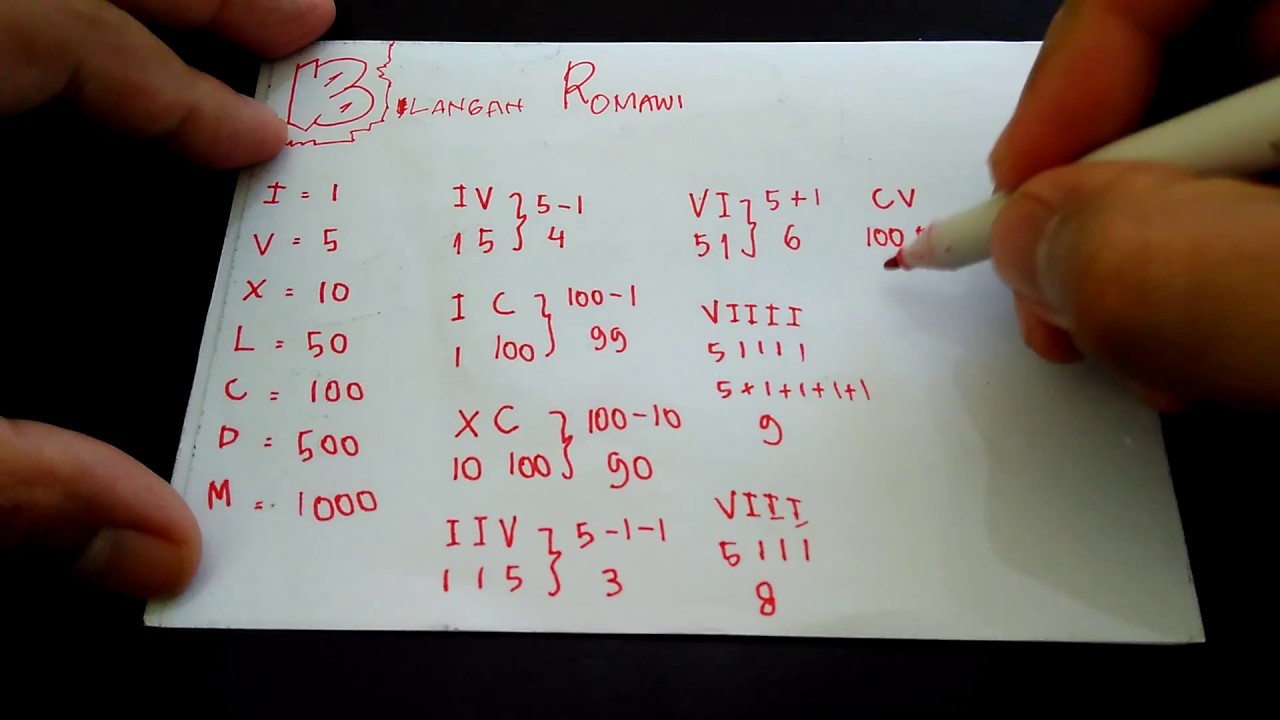 BILANGAN ROMAWI
I = 1
V = 5
X = 10
L = 50
C = 100
D = 500
M = 1000
IV } 5-1
1 5 } 4
I C } 100-1
1 100 } 99
X C } 100-10
10 100 } 90
IIV } 5-1-1
1 1 5 } 3
VI } 5+1
5 1 } 6
VIIII
5 1 1 1 1
5+1+1+1+1
9
VIII
5 1 1 1
8
CV
100